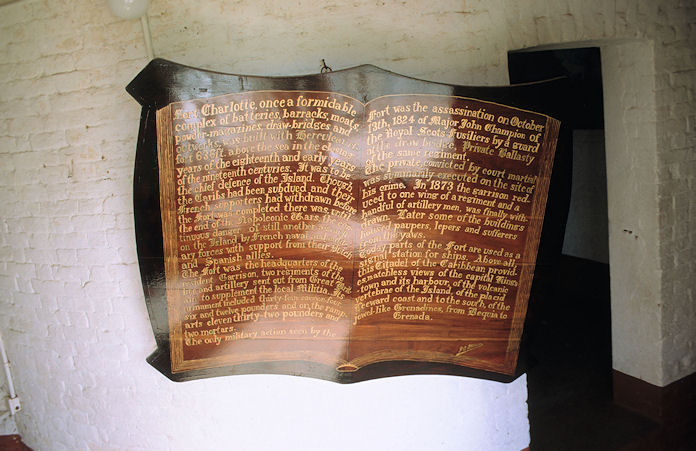 Fort Charlotte, once a formidable
complex of batteries, barracks, moats,
powder-magazines, draw-bridges and
was built with
fort 636ft above the sea in the closing
years of the eighteenth and early years
of the nineteenth centuries. It was to be
the chief defence of the Island. Though
the Caribs had been subdued and their
French supporters had withdrawn before
the Fort was completed there was, until
the end of the Napoleonic Wars, the con-
tinuous danger of still another
on the Island by French naval and
ary forces with support from their
and Spanish allies.
The Fort was the headquarters of the
resident Garrison, two regiments of
and artillery sent out from Great
ain to supplement the local Militia. Its
armament included thirty-four cannon four
six and twelve pounders and on the ramp-
arts eleven thirty-two pounders and
two mortars.
The only military action seen by the
Fort was the assassination on October
13th, 1824 of Major John Champion of
the Royal Scots Fusiliers by a guard
of the draw bridge, Private Ballasty
of the same regiment.
The private, convicted by court martial
was summarily executed on the site of
his crime. In 1873 the garrison red-
uced to one wing of a regiment and a
handful of artillery men, was finally with-
drawn. Later some of the buildings
housed paupers, lepers and sufferers
from the yaws.
Today parts of the Fort are used as a
signal station for ships. Above all,
this Citadel of the Caribbean provid-
es matchless views of the capital Kings-
town and its harbour, of the volcanic
vertebrae of the Island, of the placid
Leeward coast and to the south, of the
jewel-like Grenadines, from Bequia to
Grenada.